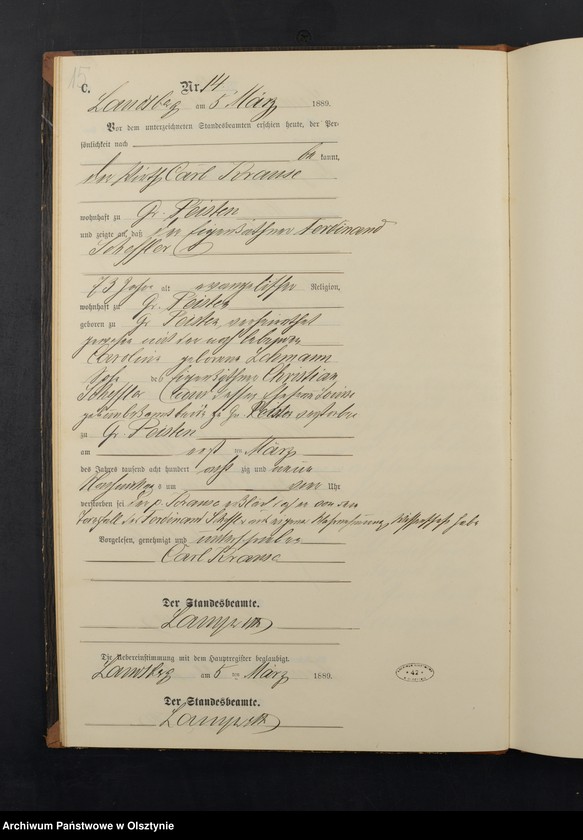 15
C.
Nr. 14
Landsberg am 5 März 1889.
Vor dem unterzeichneten Standesbeamten erschien heute, der Per-
sönlichkeit nach
be kannt,
der Wirth Carl Krause
wohnhaft zu Gr. Peisten
und zeigte an, daß der Eigenkäthner Ferdinand
Scheffler
73 Jahre alt evangelischer Religion,
wohnhaft zu Gr. Peisten
geboren zu Gr. Peisten, verheirathet
gewesen mit der noch lebenden
Caroline geborene Lehmann
Sohn des Eigenkäthner Christian
Scheffler und dessen Ehefrau Louise
geb. unbekannt beide zu Gr. Peisten verstorben
zu Gr. Peisten
am ersten März
des Jahres tausend acht hundert acht zig und neun
Nachmittags um Uhr
verstorben sei. Der p. Krause erklärt, daß er von dem
Todesfall des Ferdinand Scheffler aus eigener Wissenschaft habe
Vorgelesen, genehmigt und unterschrieben
Carl Krause
Der Standesbeamte.
Die Uebereinstimmung mit dem Hauptregister beglaubigt.
Landsberg am 5 ten März 1889.
Der Standesbeamte.
42
Archiwum Państwowe w Olsztynie